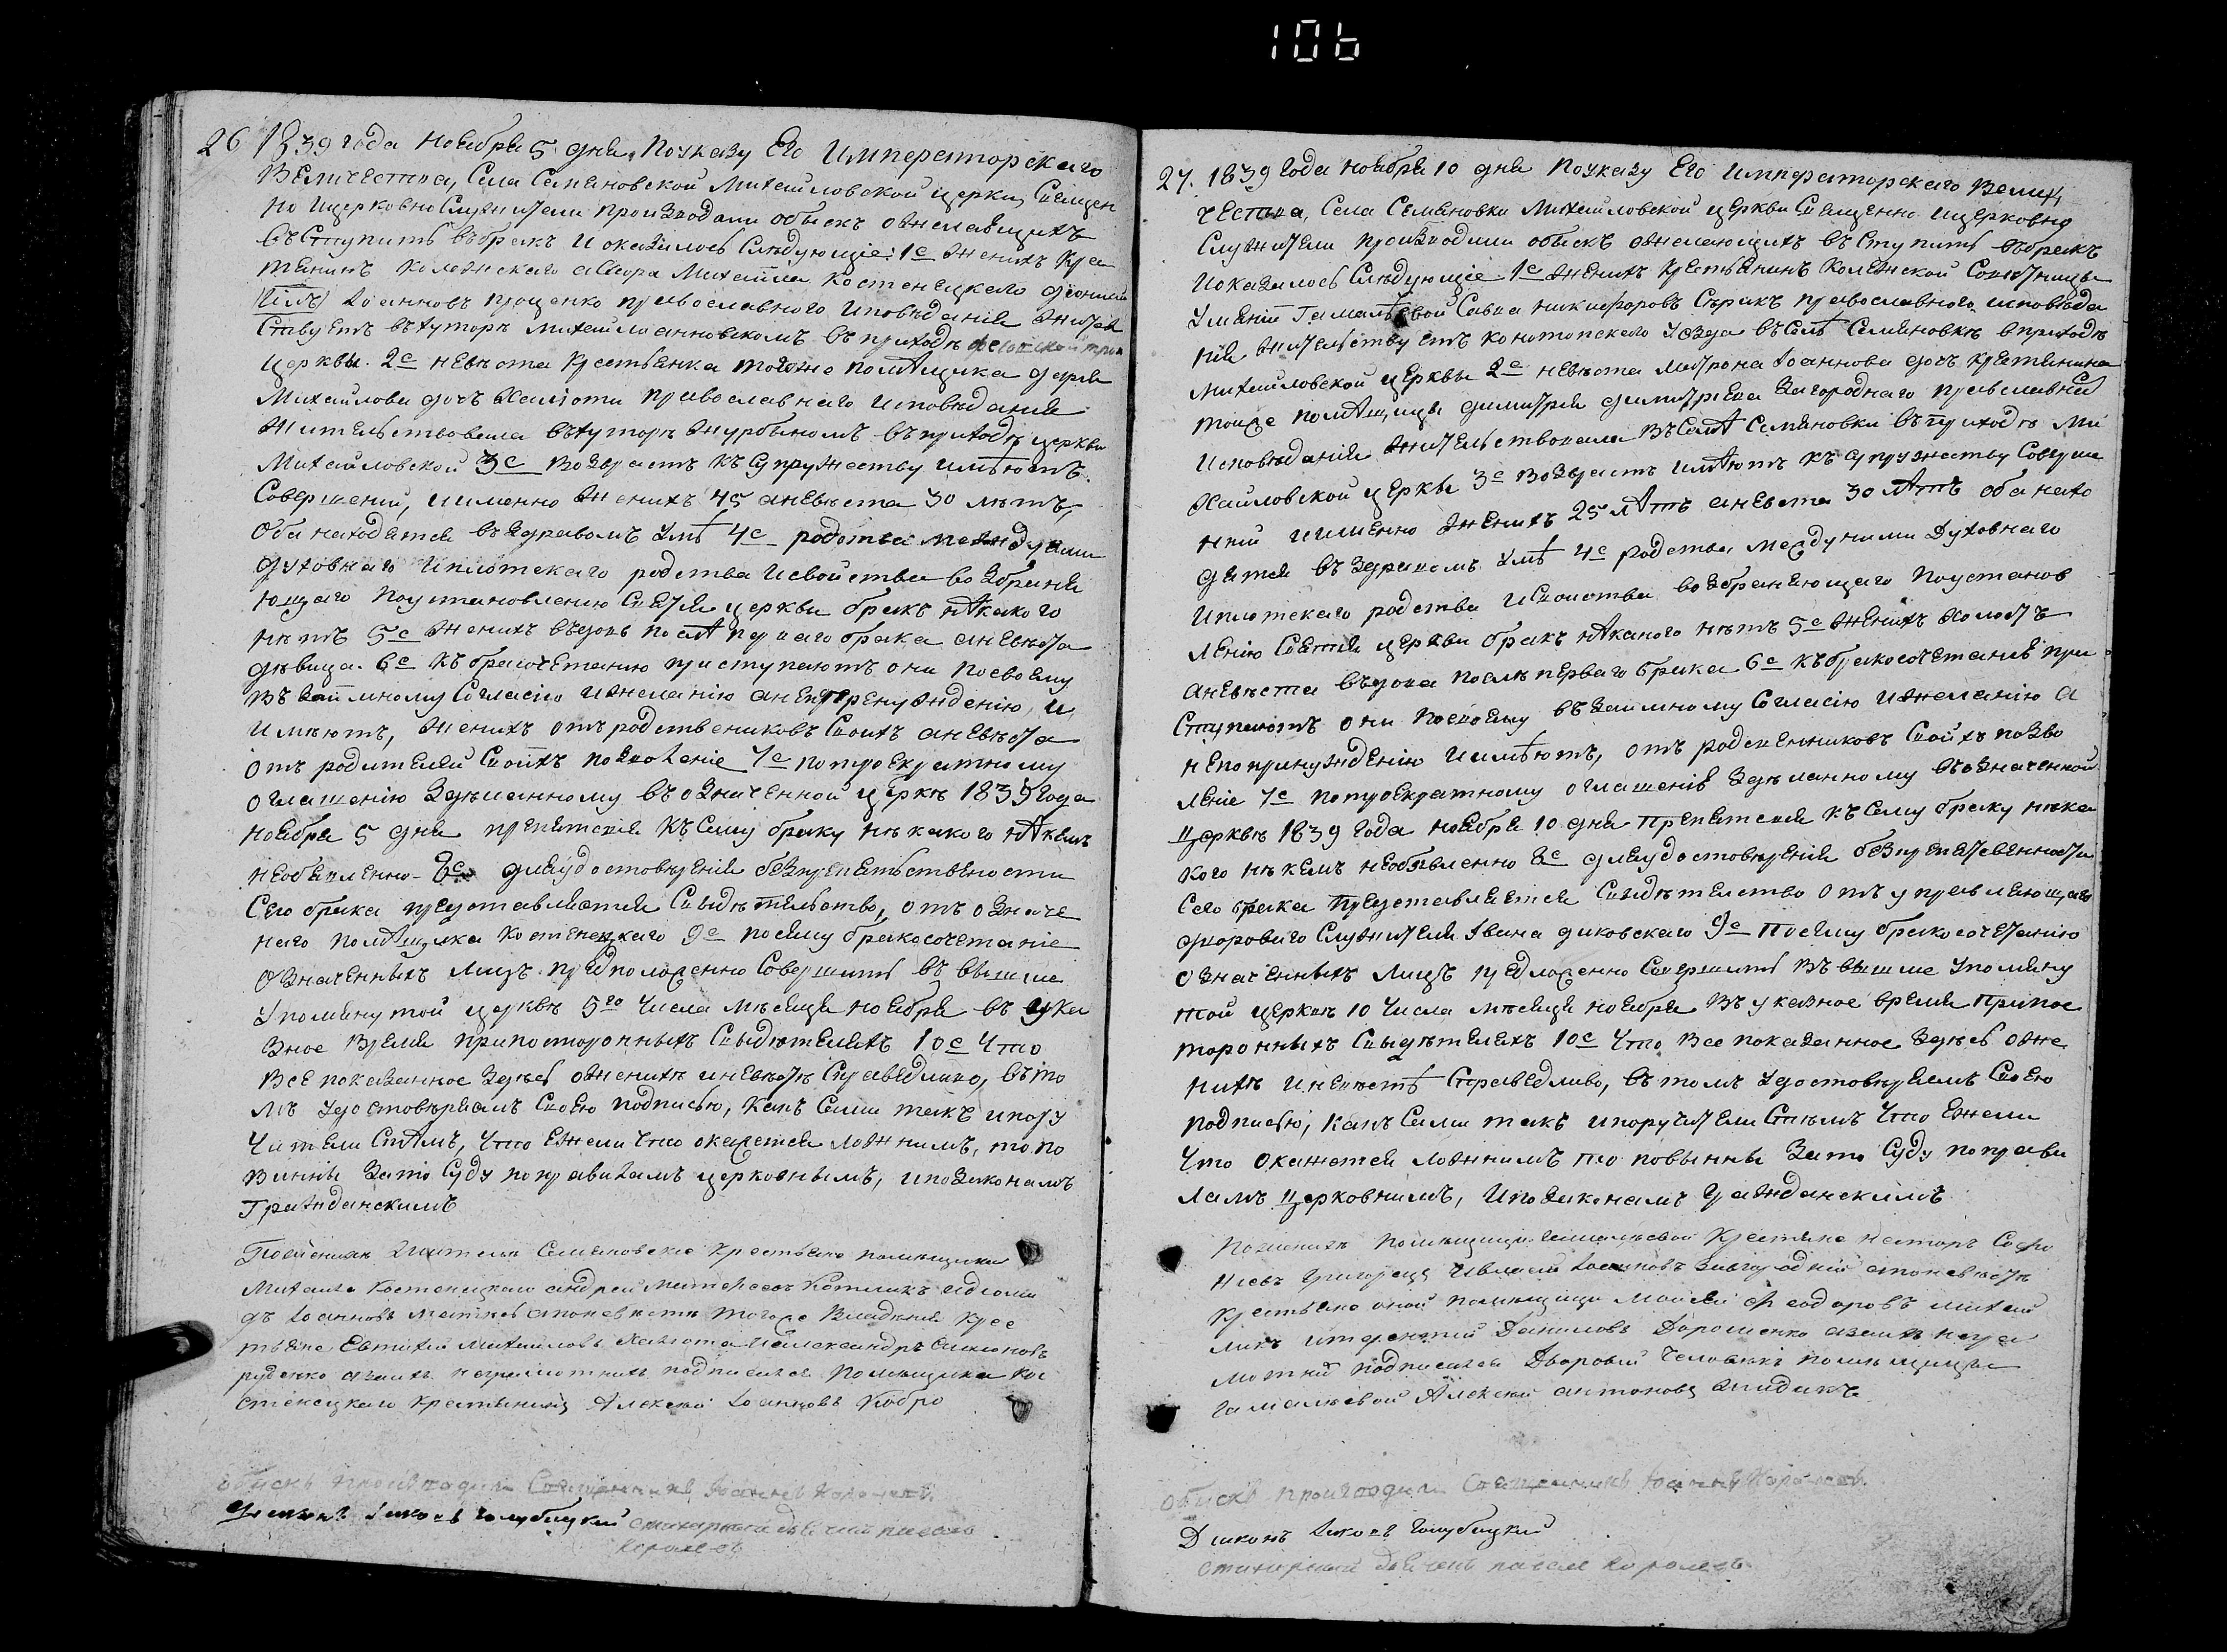 106
26 1839 года ноября 5 дня, По указу Его Императорского
Величества, Села Семяновской Михайловской церкви, Священ
но и церковно Служители производили обыскъ о желающихъ
въступить въ бракъ и оказалось Слѣдующіе: 1е женихъ Кре
тянинъ Колежскаго асесора Михаила Костенецкаго
Іоанновъ проценко православного исповѣданія жител
ствуетъ въ хуторѣ Михайлоанновскомъ въ приходѣ
церквы. 2е невѣста крестьянка тогоже помѣщика дарія
Михайлова дочь Халюти православнаго исповѣданія
Жительствовала въ хуторѣ Журбиномъ въ приходѣ церкви
Михайловской 3е возврастъ къ супружеству имѣютъ
Совершеній, и именно женихъ 45 а невѣста 30 лѣтъ,
Оба находятся въ здравомъ умѣ 4е родства между ими
духовнаго и плотскаго родства и свойства возбраня
ющаго по установленію Святія церкви бракъ нѣкакого
нѣтъ 5е женихъ въдовъ послѣ перваго брака а невѣста
дѣвица. 6е къ бракосочетанію приступаютъ они по своему
въ заимному Согласію и желанію а не по принужденію, и
имѣютъ, женихъ отъ родствениковъ Своихъ а невѣста
отъ родителей Своихъ позволеніе 7е по троекратному
оглашенію зделанному въ означенной церквѣ 1839 года
ноября 5 дня препятствія къ Сему браку нѣкакого нѣкемъ
необявленно 8е для удостовѣренія безпрепятьствености
Сего брака представляется Свидѣтельство, отъ означе
наго помѣщика Костенецкаго 9е посему бракосочетаніе
означенныхъ лицъ предположенно Совершить въ вышше
упомянутой церквѣ 5го числа мѣсяца ноября въ ука
зное время при посторонныхъ Свидѣтеляхъ 10е Что
все показанное здѣсь о женихѣ и невѣстѣ Справедливо, въ то
мъ удостовѣряемъ Своею подписью, какъ Сами такъ и пору
чители Стѣмъ, что ежели что окажется ложнимъ, то по
винны за то Суду по правиламъ церковнымъ, и по законамъ
Гражданскимъ
По женихѣ Семяновские крестьяне помещика
Михаила Костенецкаго андрей
Іоанновъ а по невѣстѣ тогоже Владѣнія кре
тьяне Евтихій Михайловъ Халюта и Александръ Симоновъ
руденко а за ихъ неграмотнихъ подписался помѣщика Ко
стенецкаго крестьянинъ Алексей Іоанновъ Кобро
обыскъ производили Священникъ Іоаннъ Королевъ.
Диаконъ Іаковъ Голубицкий стихарный дьячий павелъ
Королевъ
27. 1839 года ноября 10 дня По указу Его Императорскаго Велич
чества, Села Семяновки Михайловской церкви Священно и церковно
Служители производили обыскъ о желающихъ въступить въ бракъ
и оказалось Слѣдующіе 1е женихъ крестьянинъ Колежской Совѣтницы
умѣніи Гамалѣевой Савва никифоровъ Сѣрикъ православного исповѣда
нія жительствуетъ конотопского уезда въ селѣ Семяновкѣ в приходѣ
Михайловской церквы 2е невѣста Матрона Іоаннова дочь крестянина
тоиже помѣщицы димитрія димитріева Загороднаго православна
исповѣданія жительствовала въ селѣ Семяновки въ приходѣ Ми
хайловской церквы 3е возврастъ имѣютъ къ супружеству Соверше
ний и именно женихъ 25 лѣтъ а невѣста 30 лѣтъ оба нахо
дятся въ здравомъ умѣ 4е родства, между ними Духовнаго
и плотскаго родства и Своиства возбраняющаго по установ
ленію Святія церкви бракъ нѣкакого нѣтъ 5е женихъ холостъ
а невѣста въдова послѣ перваго брака 6е къ бракосочетаніе при
ступаютъ они по своему въ заимному Согласію и желанію а
не по принужденію и имѣютъ, отъ родственниковъ Своихъ позво
леніе 7е по троекратному оглашенія зделанному въ означенной
церквѣ 1839 года ноября 10 дня препятствія къ Сему браку нѣка
кого нѣкемъ необявленно 8е для удостовѣренія безпрепятсвенности
Сего брака представляется Свидѣтелство отъ управляющаго
дворового Служителя Івана диковскаго 9е По сему бракосочетанію
означенныхъ лицъ предложенно Совершить въ вышше упомяну
той церквѣ 10 числа мѣсяця ноября въ указное время при пос
торонныхъ Свидѣтеляхъ 10е что все показанное здѣсь о же
нихѣ и невѣстѣ Справедливо, въ томъ удостовѣряемъ Своею
подписью, какъ Сами такъ и поручители Стѣмъ что ежели
что окажется ложнимъ то повынны за то Суду по прави
ламъ церковнимъ, и по законамъ гражданскимъ
По женихѣ помѣщици Гамалѣевой крестяне несторъ Софро
ніевъ Григореця и власій Іоанновъ Завгородній а по невѣстѣ
крестьяне оной помѣщици Моисей Феодоровъ
и терентій Даниловъ Дорошенко а за ихъ негра
мотній подписался Дворовій человѣкъ помѣщицы
Гамалѣевой Алексей антоновъ
обыскъ производили Священникъ Іоаннъ Королевъ.
Диаконъ Іаковъ Голубицкий
стихарный дьячекъ павелъ Королевъ.